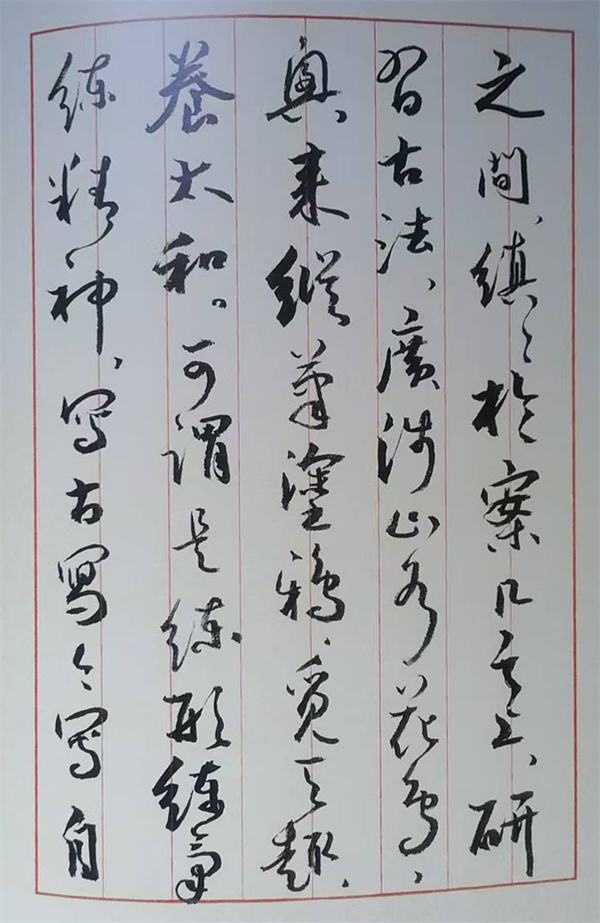 之間、縝〻於案几之上、研
習古法、廣涉山水花鳥、
興来縱筆塗鴉、覓天趣、
養太和。可謂是練形練氣
練精神、寫古寫今寫自